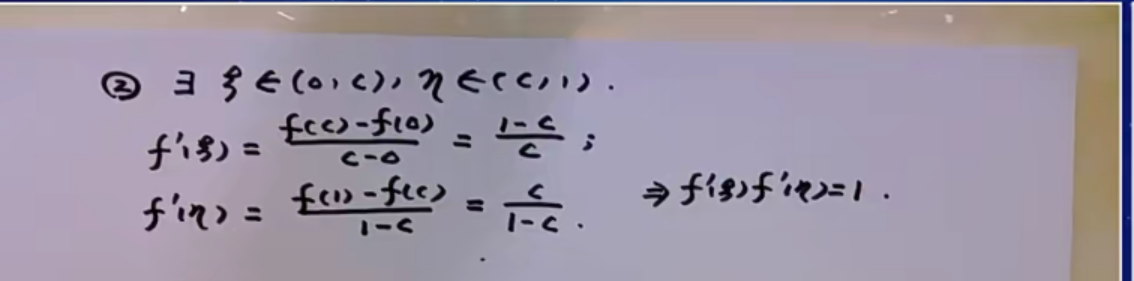 ② ∃ ξ ∈ (0, c), η ∈ (c, 1).
f'(ξ) = \frac{f(c)-f(0)}{c-0} = \frac{1-c}{c} ;
f'(η) = \frac{f(1)-f(c)}{1-c} = \frac{c}{1-c} . ⇒ f'(ξ)f'(η)=1 .